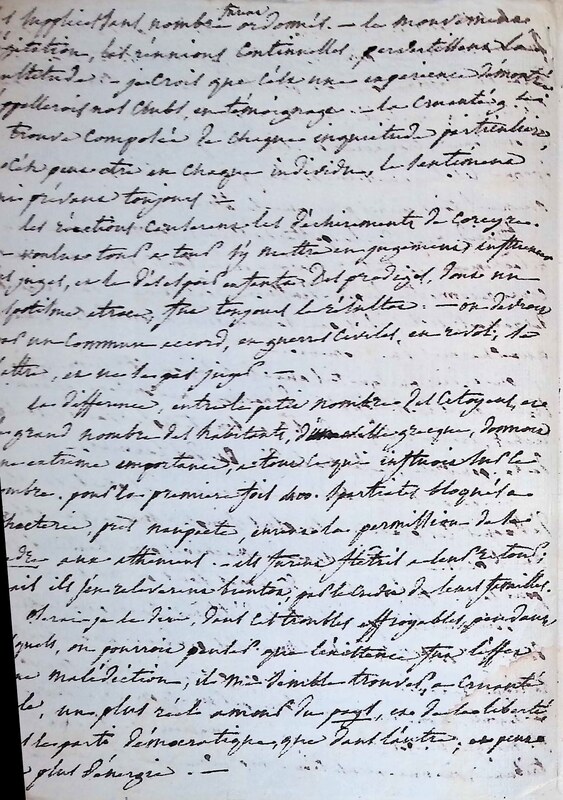 s supplications nombre furent ordonnés. — le mouvement
agitation, les réunions continuelles, pervertissent la
multitude — je crois que c'est une expérience démontrée
appellerois nos clubs, en témoignage. — la cruauté
trouve composée de chaque inquiétude particulière,
peut etre en chaque individu, le sentiment
qui prévaut toujours —
les réactions causerent les déchirements de Corcyre.
— vouloir tous a tous s'y mettre en jugement influence
les juges, et le désespoir enfanta des prodiges, dont un
despotisme atroce, fut toujours le résultat — on devroit
d'un commun accord, en guerres civiles, en révolte, se
battre, et ne se pas juger —
la difference, entre le petit nombre des Citoyens, et
grand nombre des habitants, d'une ville grecque, donnoit
une extrême importance, a tout ce qui influoit sur le
nombre. pour la premiere fois 400. Spartiates bloqués a
Sphacterie près naupacte, eurent la permission de se
rendre aux atheniens — ils furent flétris a leur retour,
mais ils s'en releverent bientôt, par le credit de leurs familles.
Oserai-je le dire, dans ces troubles effroyables, pendant
lesquels, on pourroit penser que l'existence fut l'effet
une malédiction, il me semble trouver, a cruauté
le, un plus réel amour du pays, et de la liberté
le parti démocratique, que dans l'autre, et peut
plus d'énergie. —